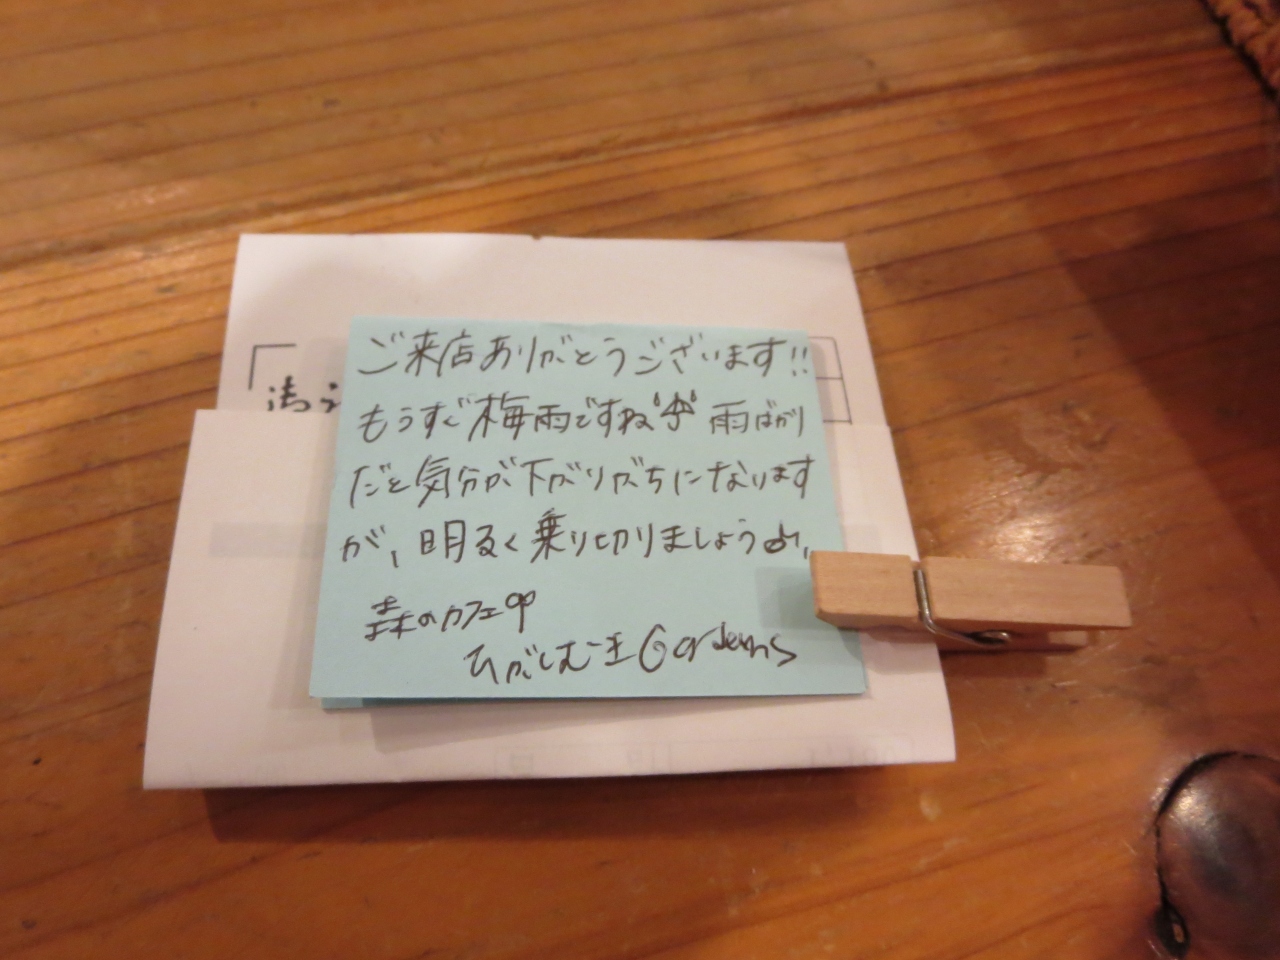 ご来店ありがとうございます!!
もうすぐ梅雨ですね 雨ばかり
だと気分が下がりがちになります
が、明るく乗り切りましょう♪
森のカフェ
ひがしむき Gardens